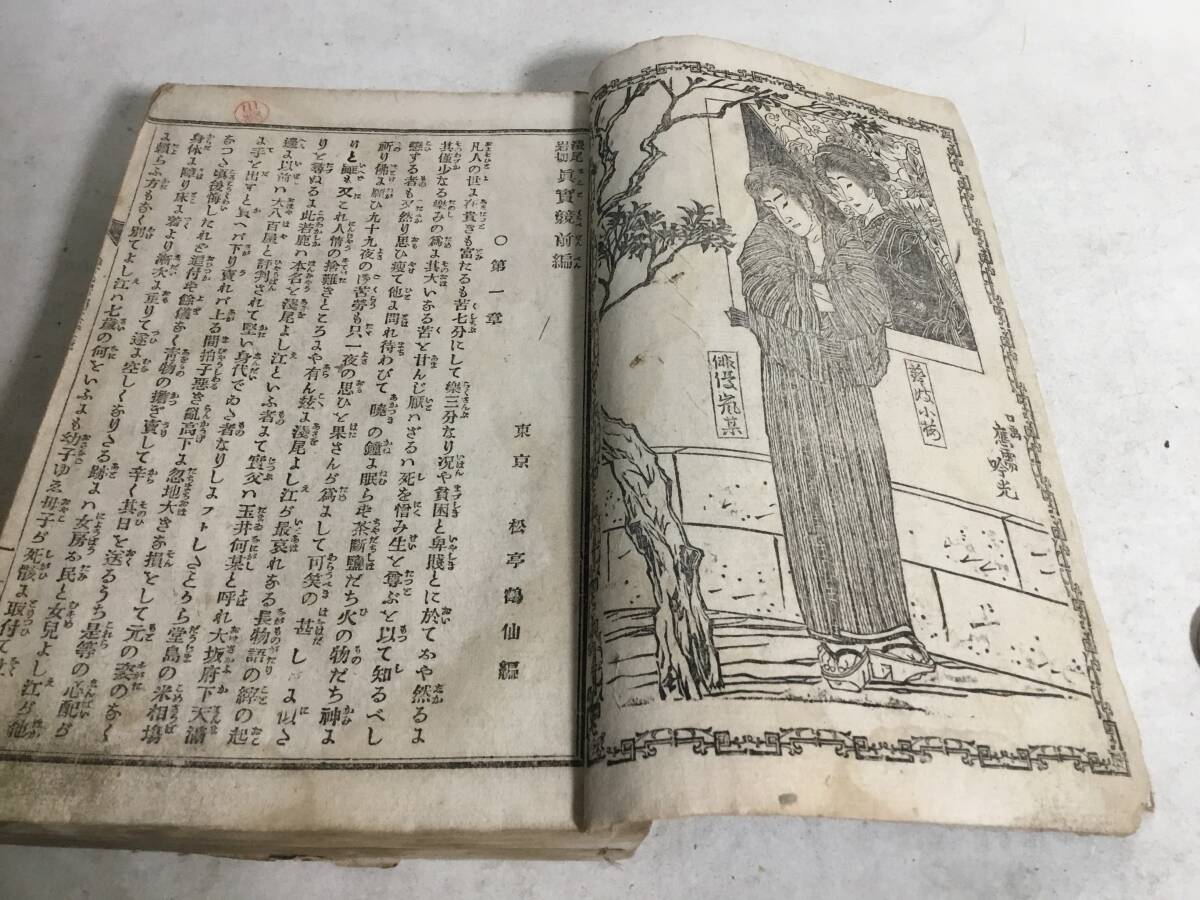 藝妓小菊
俳優嵐某
應需
吟光
淺尾
岩切
真實競前編
東京 松亭鶴仙編
〇第一章
凡人の世ょ在貴きも富たるも苦七分にして樂三分なり况や貧困と卑賤とに於てかや然るょ
其僅少なる樂みの爲ょ其大いなる苦と甘んじ厭ハざるハ死を惜み生と尊ぶと以て知るべし
戀する者も又然り思ひ瘦て他ょ問れ待わびて曉の鐘ょ眠らず茶斷鹽だち火の物だち神ょ
祈り佛ょ願ひ九十九夜の苦勞も只一夜の思ひと果さんが爲ょして可笑の甚しょ似さ
れと雖ょ又これ人情の捨難きところょや有ん玆ょ淺尾よし江が最哀れなる長物語の緒の起
りと尋ぬるょ此若鹿ハ本名と淺尾よし江といふ者ょて實父ハ玉井何某と呼れ大坂府下天滿
邊ょ以前ハ大八百屋と評判されて堅い身代でゐた者なりしょフトしたことから堂島の米相塲
ょ手と出すと買ヘバ下り賣れバ上る間拍子悪き亂高下ょ忽地大きな損をして元の姿のなく
なつゝ後悔したれど追付ず餘儀なく青物の擔ぎ賣して辛く其日を送るうち是等の心配が
身体ょ障り床ょ着より漸次ょ重りて遂ょ空しくなりたる跡ょハ女房お民と女兒よし江が他
ょ賴らふ方もなく別てよし江ハ七歳の何といふょも幼子ゆゑ母子が死骸ょ取付て